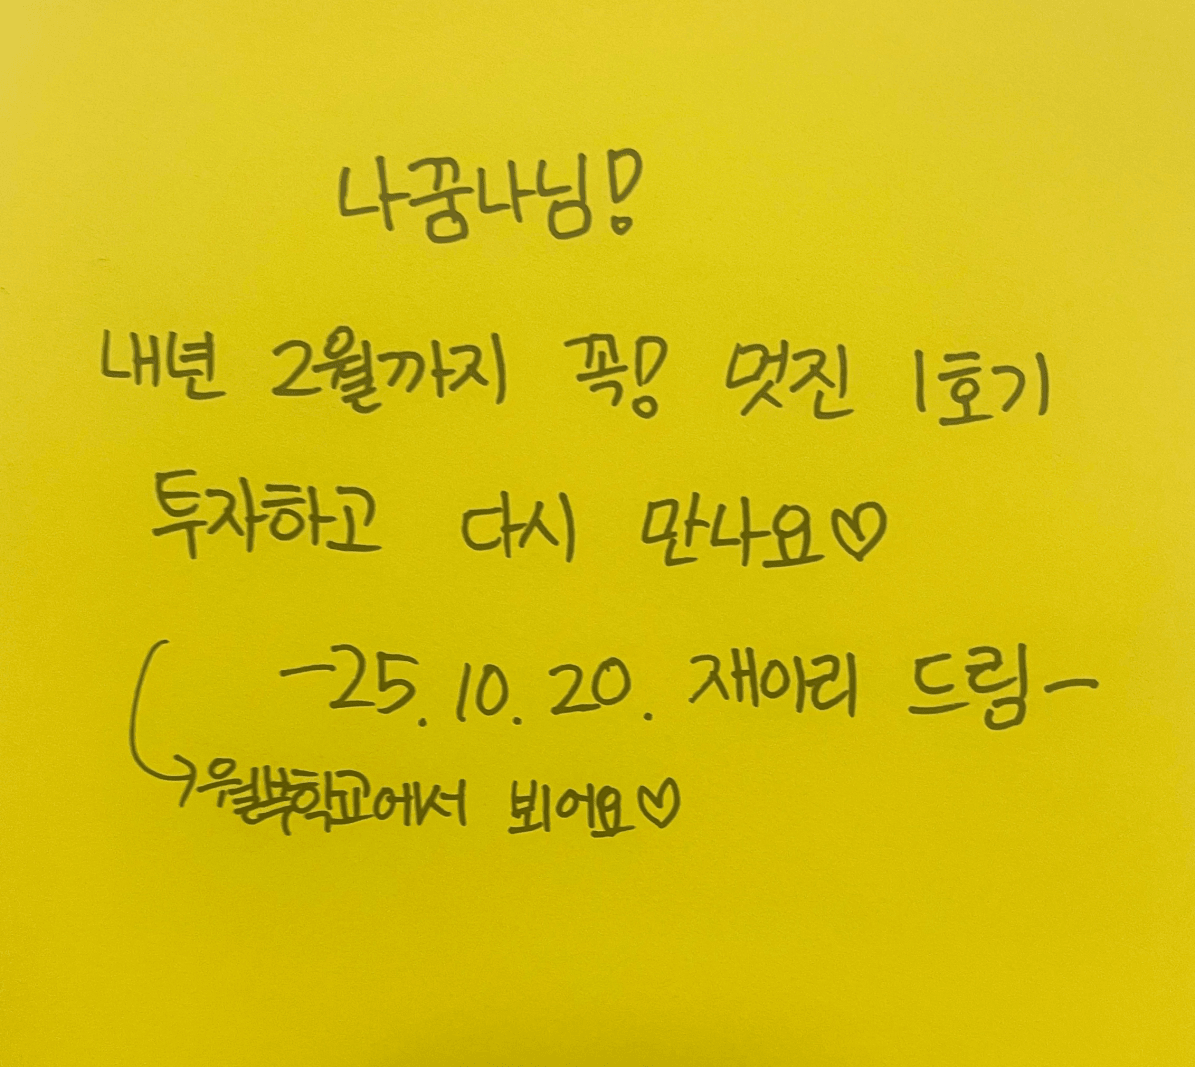 나꿈나님!
내년 2월까지 꼭! 멋진 1호기
투자하고 다시 만나요♡
-25.10.20. 재이리 드림-
→월부학교에서 뵈어요♡